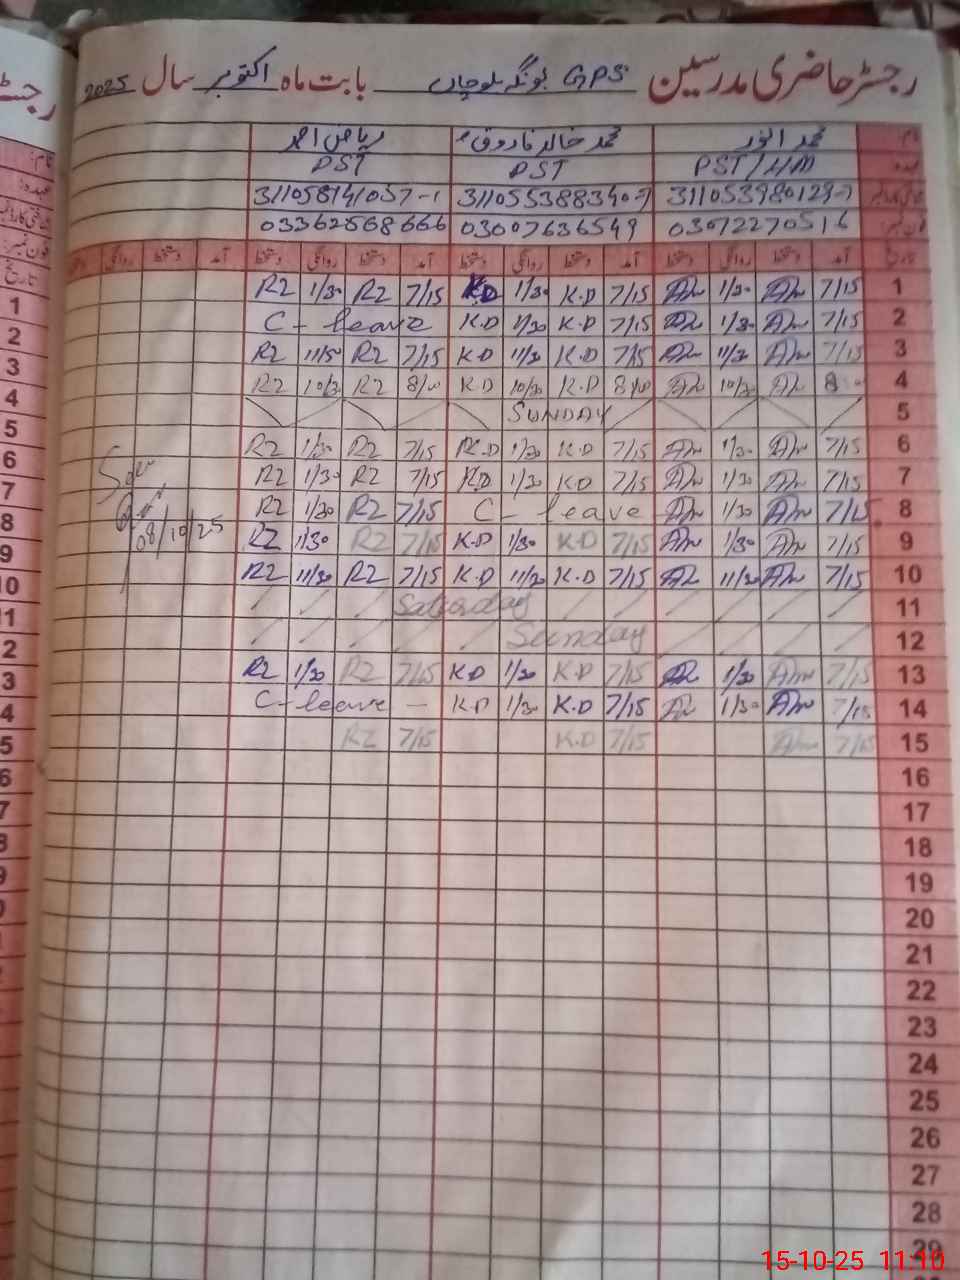 رجسٹر حاضری مدرسین GPS بونگہ بلوچاں بابت ماہ اکتوبر سال 2025
نام محمد انور محمد خالد فاروق ریاض احمد
عہدہ PST/HM PST PST
311053980129-7 311055388340-7 311058741037-1
فون نمبر: 03072270516 03007636549 03362568666
تاریخ آمد دستخط روانگی دستخط آمد دستخط روانگی دستخط آمد دستخط روانگی دستخط آمد دستخط روانگی دستخط
1 7/15 1/30 7/15 K.D 1/30 K.D 7/15 RZ 1/30 RZ
2 7/15 1/30 7/15 K.D 1/30 K.D C-leave
3 7/15 11/30 7/15 K.D 11/30 K.D 7/15 RZ 11/30 RZ
4 10/30 K.D 10/30 K.D RZ 10/30 RZ
5 SUNDAY
6 7/15 1/30 7/15 K.D 1/30 K.D 7/15 RZ 1/30 RZ
7 7/15 1/30 7/15 KD 1/30 KD 7/15 RZ 1/30 RZ
8 7/15 1/30 C-leave 7/15 RZ 1/30 RZ
08/10/25
9 7/15 1/30 7/15 K.D 1/30 K.D 7/15 RZ 1/30 RZ
10 7/15 11/30 7/15 K.D 11/30 K.D 7/15 RZ 11/30 RZ
11 Saturday
12 Sunday
13 7/15 1/30 7/15 K.D 1/30 K.D 7/15 RZ 1/30 RZ
14 7/15 1/30 7/15 K.D 1/30 K.D C-leave
15 7/15 7/15 K.D 7/15 RZ
16
17
18
19
20
21
22
23
24
25
26
27
28
29
15-10-25 11:10